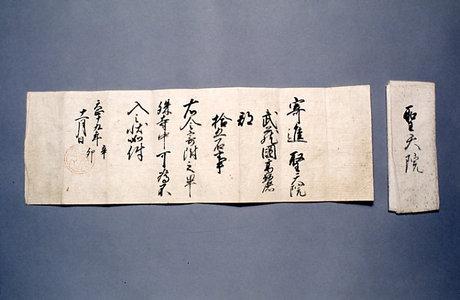 寄進 聖天院
武蔵國高麗
郡
拾五石事
右令寄附之畢
殊寺中可為不
入之状如件
天正十九年辛卯
十一月日
聖天院